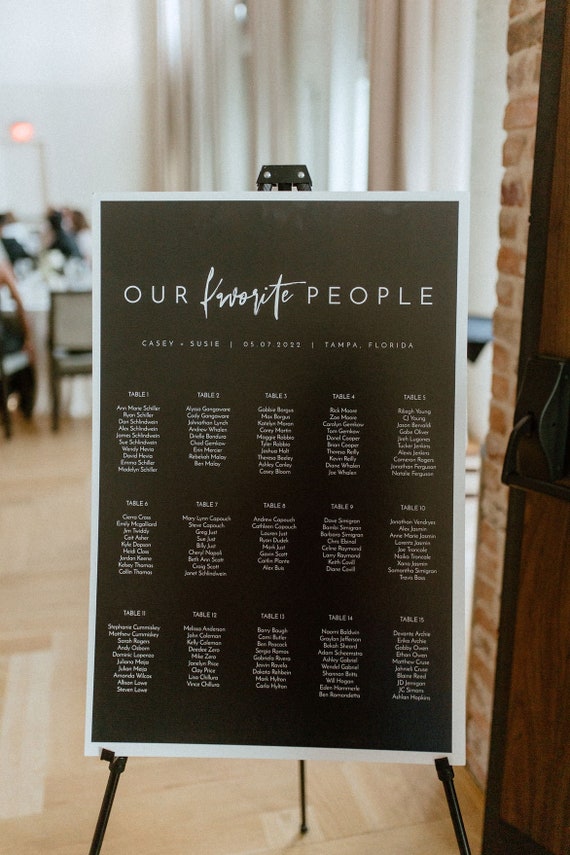 OUR favorite PEOPLE
CASEY + SUSIE | 05.07.2022 | TAMPA, FLORIDA
TABLE 1
Ann Marie Schiller
Ryan Schiller
Dan Schlindwein
Alex Schlindwein
James Schlindwein
Sue Schlindwein
Wendy Hevia
David Hevia
Emma Schiller
Madelyn Schiller
TABLE 2
Alyssa Gangaware
Cody Gangaware
Johnathan Lynch
Andrew Whalen
Drielle Bandura
Chad Gemkow
Erin Mercier
Rebekah Malay
Ben Malay
TABLE 3
Gabbie Borgus
Max Borgus
Katelyn Moron
Corey Martin
Maggie Robbio
Tyler Robbio
Joshua Holt
Theresa Beeley
Ashley Conley
Casey Bloom
TABLE 4
Rick Moore
Zoe Moore
Carolyn Gemkow
Tom Gemkow
Donel Cooper
Brian Cooper
Theresa Reilly
Kevin Reilly
Diane Whalen
Joe Whalen
TABLE 5
Rileigh Young
CJ Young
Jason Bervaldi
Gabe Oliver
Josh Lugones
Tucker Jenkins
Alexis Jenkins
Cameron Rogers
Jonathan Ferguson
Natalie Ferguson
TABLE 6
Cierra Cross
Emily Mcgalliard
Jim Twiddy
Cait Asher
Kyle Dopson
Heidi Closs
Jordan Keene
Kelsey Thomas
Collin Thomas
TABLE 7
Mary Lynn Capouch
Steve Capouch
Greg Just
Sue Just
Billy Just
Cheryl Napoli
Beth Ann Scott
Craig Scott
Janet Schlindwein
TABLE 8
Andrew Capouch
Cathleen Capouch
Lauren Just
Ryan Dudek
Mark Just
Gavin Scott
Caitlin Plante
Alex Buis
TABLE 9
Dave Simigran
Bambi Simigran
Barbara Simigran
Chris Ebinal
Celine Raymond
Larry Raymond
Keith Covill
Diane Covill
TABLE 10
Jonathan Vendryes
Alex Jasmin
Anne Marie Jasmin
Loretta Jasmin
Joe Troncale
Noiko Troncale
Xana Jasmin
Samantha Simigran
Travis Bass
TABLE 11
Stephanie Cummiskey
Matthew Cummiskey
Sarah Rogers
Andy Osborn
Dominic Lopenzo
Juliana Mejia
Julian Mejia
Amanda Wilcox
Allison Lowe
Steven Lowe
TABLE 12
Melissa Anderson
John Coleman
Kelly Coleman
Deedee Zero
Mike Zero
Jocelyn Price
Clay Price
Lisa Chillura
Vince Chillura
TABLE 13
Barry Baugh
Cami Butler
Ben Peacock
Sergio Ramos
Gabriela Rivera
Jasvin Ravela
Dakota Rehbein
Mark Hylton
Carla Hylton
TABLE 14
Naomi Baldwin
Graylan Jefferson
Bekah Sheard
Adam Scheemstra
Ashley Gabriel
Wendel Gabriel
Shannan Britts
Will Hogan
Eden Hammerle
Ben Ramondetta
TABLE 15
Devante Archie
Erika Archie
Gabby Owen
Ethan Owen
Matthew Cruse
Johneli Cruse
Blaire Reed
JD Jernigan
JC Simons
Ashlan Hopkins